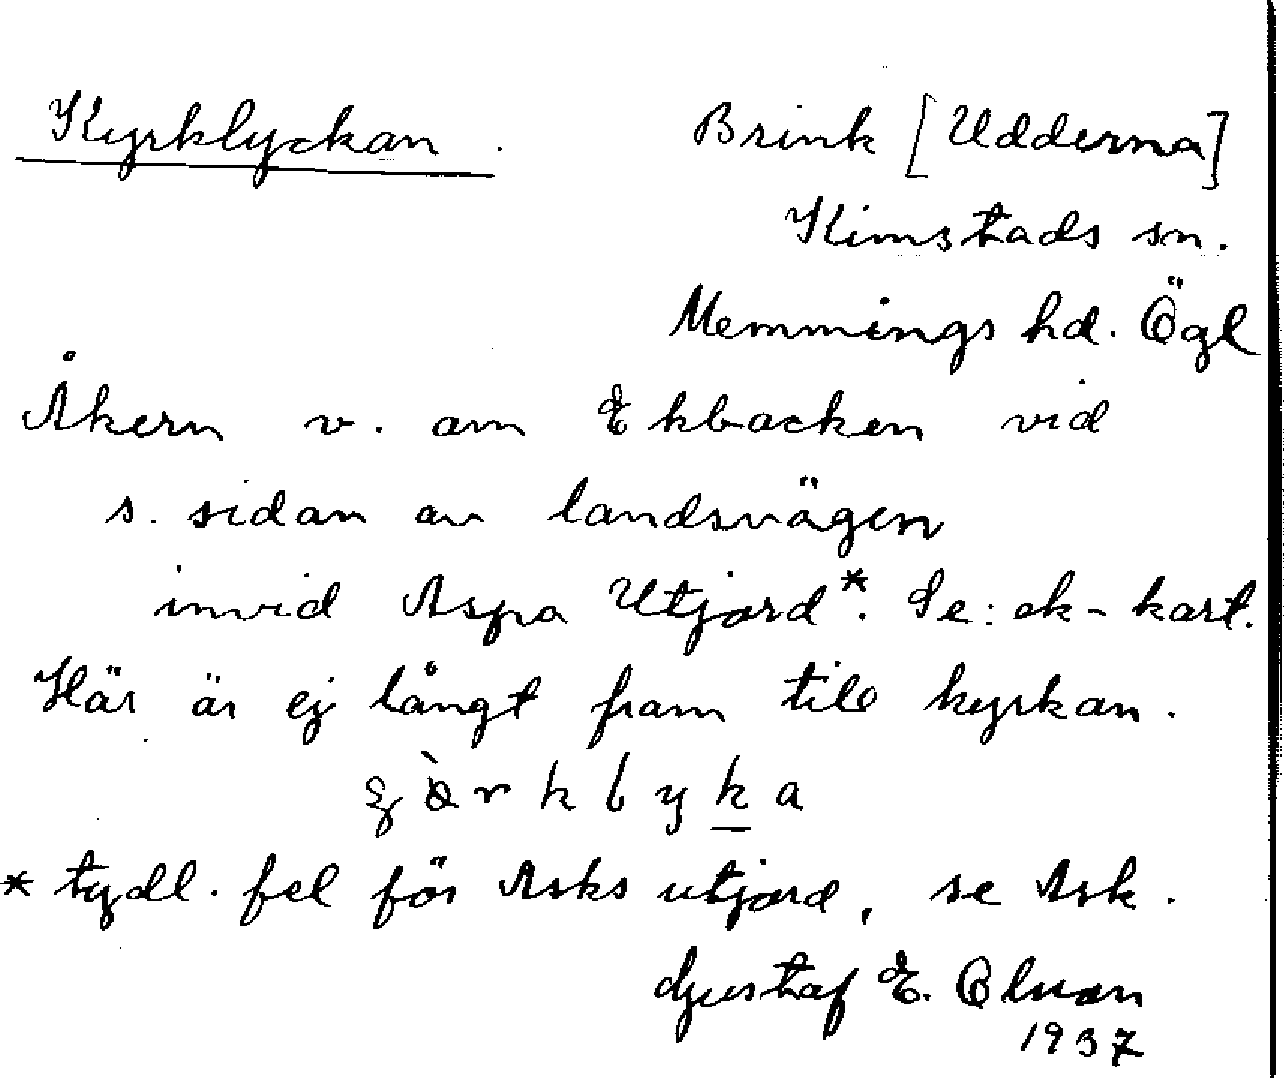 Kyrklyckan. Brink [Udderna]
Kimstads sn.
Memmings hd. Ögl
Åkern v. om Ekbacken vid
s. sidan av landsvägen
invid Aspa Utjord*. Se: ek-kart.
Här är ej långt fram till kyrkan.
* tydl. fel för Asks utjord, se Ask.
Gustaf E.
1937